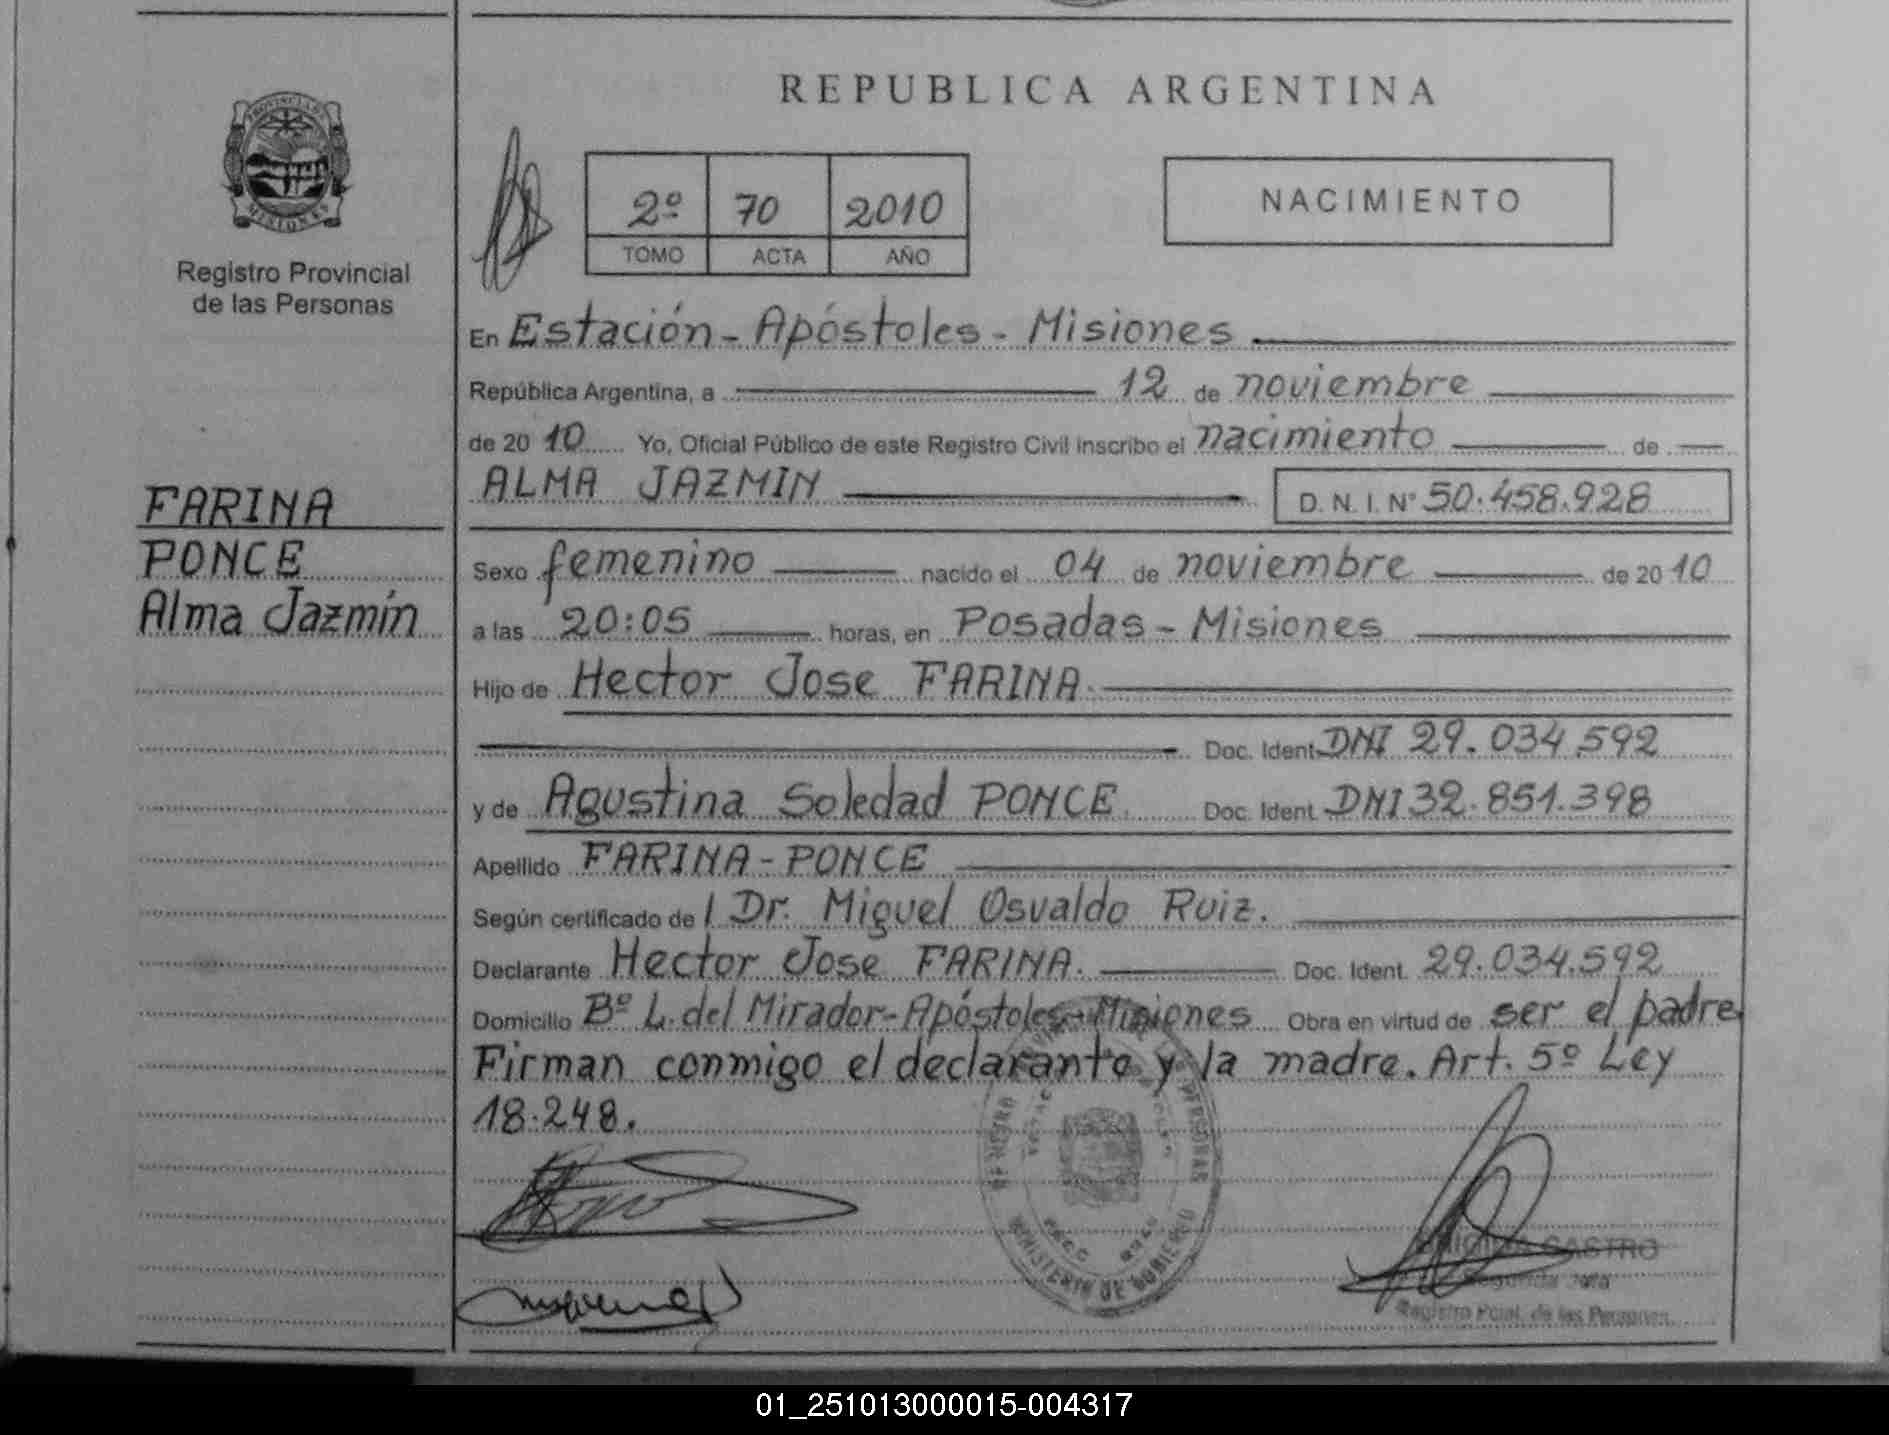 REPUBLICA ARGENTINA
PROVINCIA DE
MISIONES
Registro Provincial
de las Personas
2º 70 2010
TOMO ACTA AÑO
NACIMIENTO
En Estación - Apóstoles - Misiones
República Argentina, a 12 de noviembre
de 2010 Yo, Oficial Público de este Registro Civil inscribo el nacimiento de
ALMA JAZMIN D. N. I. Nº 50.458.928
FARINA
PONCE
Alma Jazmín
Sexo femenino nacido el 04 de noviembre de 2010
a las 20:05 horas, en Posadas - Misiones
Hijo de Hector Jose FARINA.
Doc. Ident. DNI 29.034.592
y de Agustina Soledad PONCE. Doc. Ident. DNI 32.851.398
Apellido FARINA - PONCE
Según certificado de / Dr. Miguel Osvaldo Ruiz.
Declarante Hector Jose FARINA. Doc. Ident. 29.034.592
Domicilio Bº L. del Mirador - Apóstoles - Misiones Obra en virtud de ser el padre
Firman conmigo el declarante y la madre. Art. 5º Ley
18.248.
MINISTERIO DE GOBIERNO
CASTRO
Registro Pcial. de las Personas
01_251013000015-004317